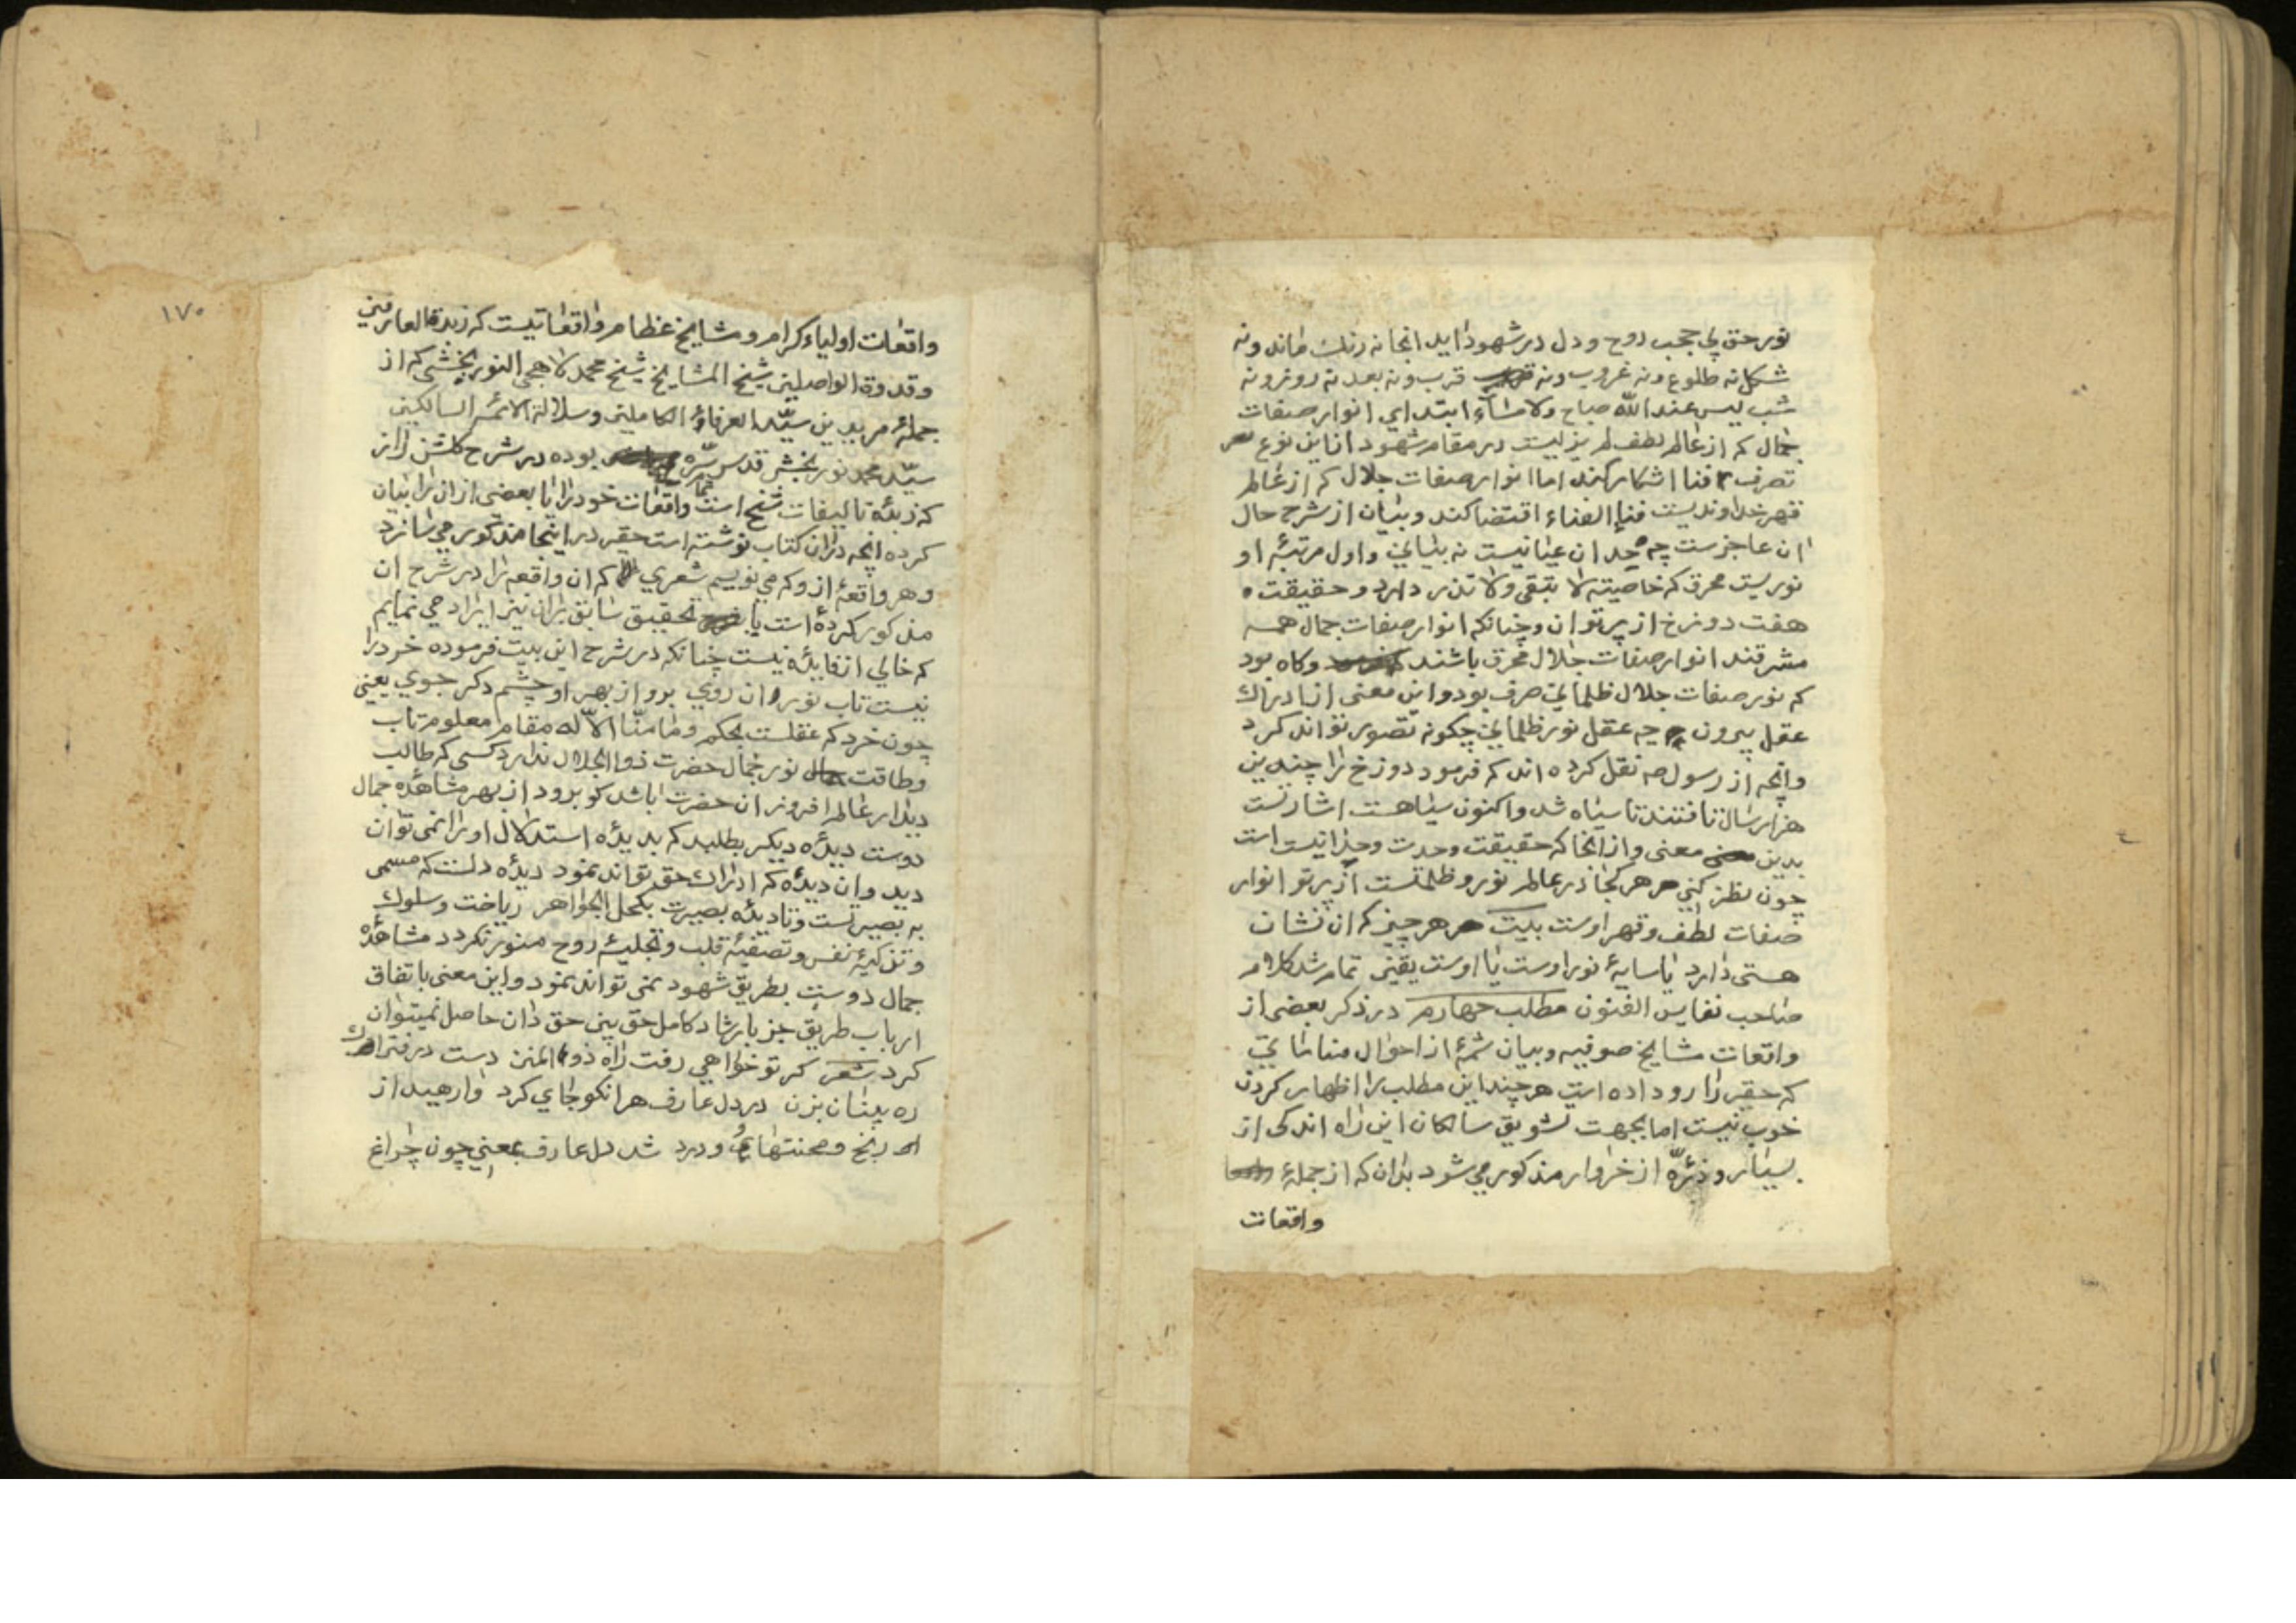 نور حق بی حجب روح و دل در شهود اید انجا نه رنك ماند و نه
شکل نه طلوع و نه غروب و نه قرب و نه بعد نه روز و نه
شب لیس عند الله صباح ولا مساء ابتدای انوار صفات
جمال که از عالم لطف لم یزلیست در مقام شهود از این نوع
تصرف فنا اشکار کند اما انوار صفات جلال که از عالم
قهر خداوندیست فناء الفناء اقتضا کند و بیان از شرح حال
ان عاجزست چه ان عیانیست نه بیانی و اول مرتبۀ او
نوریست محرق که خاصیته لا تبقی ولا تذر دارد و حقیقت
هفت دوزخ از پرتو ان و چنانکه انوار صفات جمال همه
مشرقند انوار صفات جلال محرق باشند وکاه بود
که نور صفات جلال ظلمانی صرف بود و این معنی از ادراك
عقل بیرون چه عقل نور ظلمانی چکونه تصور تواند کرد
وانچه از رسول صه نقل کرده اند که فرمود دوزخ را چندین
هزار سال تافتند تا سیاه شد و اکنون سیاهست اشارتست
بدین معنی و از انجا که حقیقت وحدت وحدانیت است
چون نظر کنی هر کجا در عالم نور و ظلمتست از پرتو انوار
صفات لطف و قهر اوست بیت هر چیز که ان نشان
هستی دارد یا سایۀ نور اوست یا اوست یقین تمام شد کلام
صاحب نفایس الفنون مطلب چهارم در ذکر بعضی از
واقعات مشایخ صوفیه و بیان شمۀ از احوال مناماتی
که حقیر را رو داده است هر چند این مطلب را اظهار کردن
خوب نیست اما بجهت تشویق سالکان این راه اندکی از
بسیار و ذرّه از خروار مذکور می شود بدان که از جملۀ
واقعات
١٧٠
واقعات اولیاء کرام و مشایخ عظام واقعاتیست که زبدة العارفین
وقدوة الواصلین شیخ المشایخ شیخ محمد لاهجی النوربخشی که از
جملۀ مریدین سیّد العرفاء الکاملین وسلالة الائمه السالکین
سیّد محمد نوربخش قدس سرّه بوده در شرح کلشن راز
که زبدۀ تالیفات شیخ است واقعات خود را با بعضی از ان را بیان
کرده انچه در ان کتاب نوشته است حقیر در اینجا مذکور می سازد
و هر واقعۀ از و که می نویسم شعری که ان واقعه را در شرح ان
مذکور کرده است با تحقیق سابق بران نیز ایراد می نمایم
که خالی از فایده نیست چنانکه در شرح این بیت فرموده خرد را
نیست تاب نور ان روی برو از بهر او چشم دکر جوی یعنی
چون خرد که عقلست بحکم وما منّا الاّ له مقام معلوم تاب
وطاقت نور جمال حضرت ذو الجلال ندارد کسی که طالب
دیدار عالم افروز ان حضرت باشد کو برود از بهر مشاهده جمال
دوست دیده دیکر بطلبد که بدیده استدلال او را نمی توان
دید و ان دیده که ادراك حق تواند نمود دیده دلست که مسمی
به بصیرتست و تا دیده بصیرت بکحل الجواهر ریاضت وسلوك
و تزکیۀ نفس و تصفیۀ قلب و تجلیۀ روح منور نکردد مشاهدۀ
جمال دوست بطریق شهود نمی تواند نمود و این معنی باتفاق
ارباب طریق جز بارشاد کامل حق بین حق دان حاصل نمیتوان
کرد شعر کر تو خواهی رفت راه ذو المنن دست در فتراك
ره بینان بزن در دل عارف هر انکو جای کرد وارهید از
رنج و محنتهای و درد شد دل عارف بمعنی چون چراغ